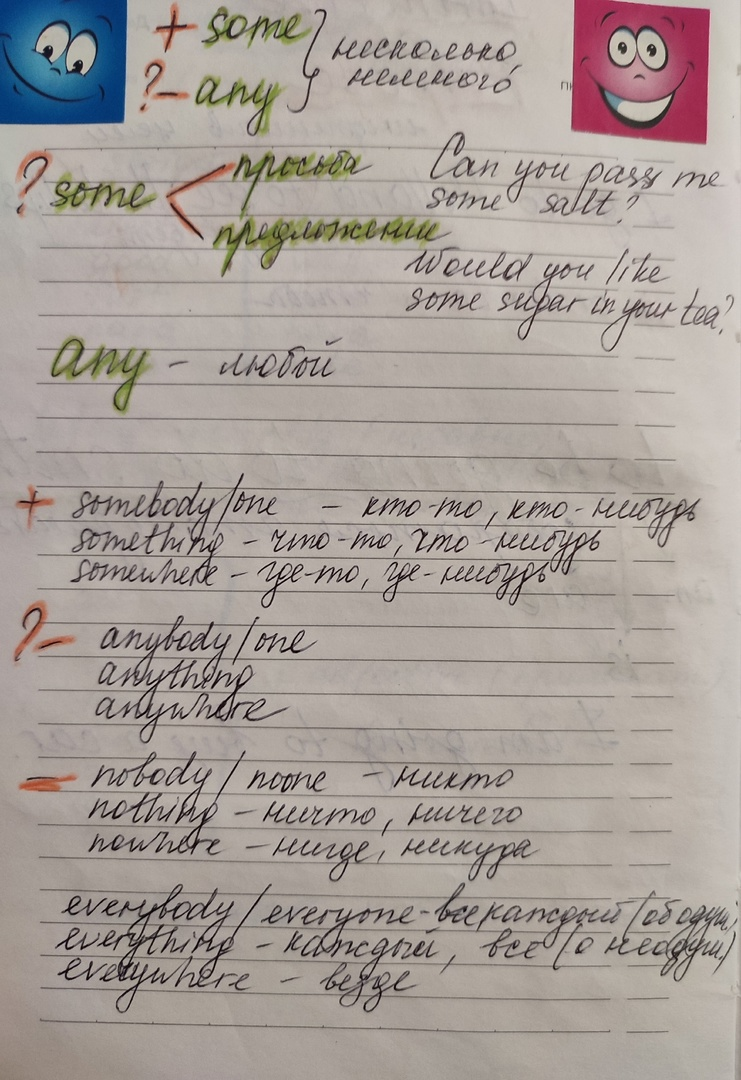 + some } несколько,
?- any } немного
? some < просьба Can you pass me
some salt?
предложение Would you like
some sugar in your tea?
any - любой
+ somebody/one - кто-то, кто-нибудь
something - что-то, что-нибудь
somewhere - где-то, где-нибудь
?- anybody/one
anything
anywhere
- nobody/noone - никто
nothing - ничто, ничего
nowhere - нигде, никуда
everybody/everyone - все каждый (об одуш.)
everything - каждый, всё (о неодуш.)
everywhere - везде